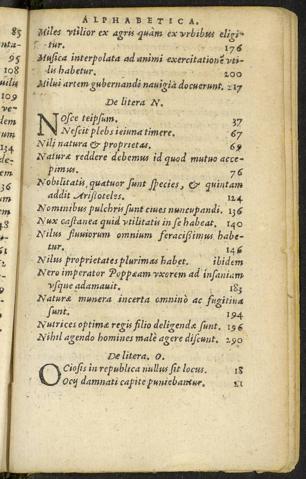 ALPHABETICA.
Miles vtilior ex agris quam ex vrbibus eligi-
tur. 176
Musica interpolata ad animi exercitationẽ vti-
lis habetur. 200
Milui artem gubernandi nauigia docuerunt. 217
De litera N.
NOsce teipsum. 37
Nescit plebs ieiuna timere. 67
Nili natura & proprietas. 69
Naturæ reddere debemus id quod mutuo acce-
pimus. 76
Nobilitatis quatuor sunt species, & quintam
addit Aristoteles. 124
Nominibus pulchris sunt eues nuncupandi. 136
Nux castanea quid vtilitatis in se habeat. 140
Nilus fluuiorum omnium feracissimus habe-
tur. 146
Nilus proprietates plurimas habet. ibidem
Nero imperator Poppæam vxorem ad insaniam
vsque adamauit. 183
Naturæ munera incerta omninò ac fugitiua
sunt. 194
Nutrices optimæ regis filio deligendæ sunt. 196
Nihil agendo homines malè agere discunt. 290
De litera. O.
OCiosis in republica nullus sit locus. 18
Ocij damnati capite puniebantur. 21